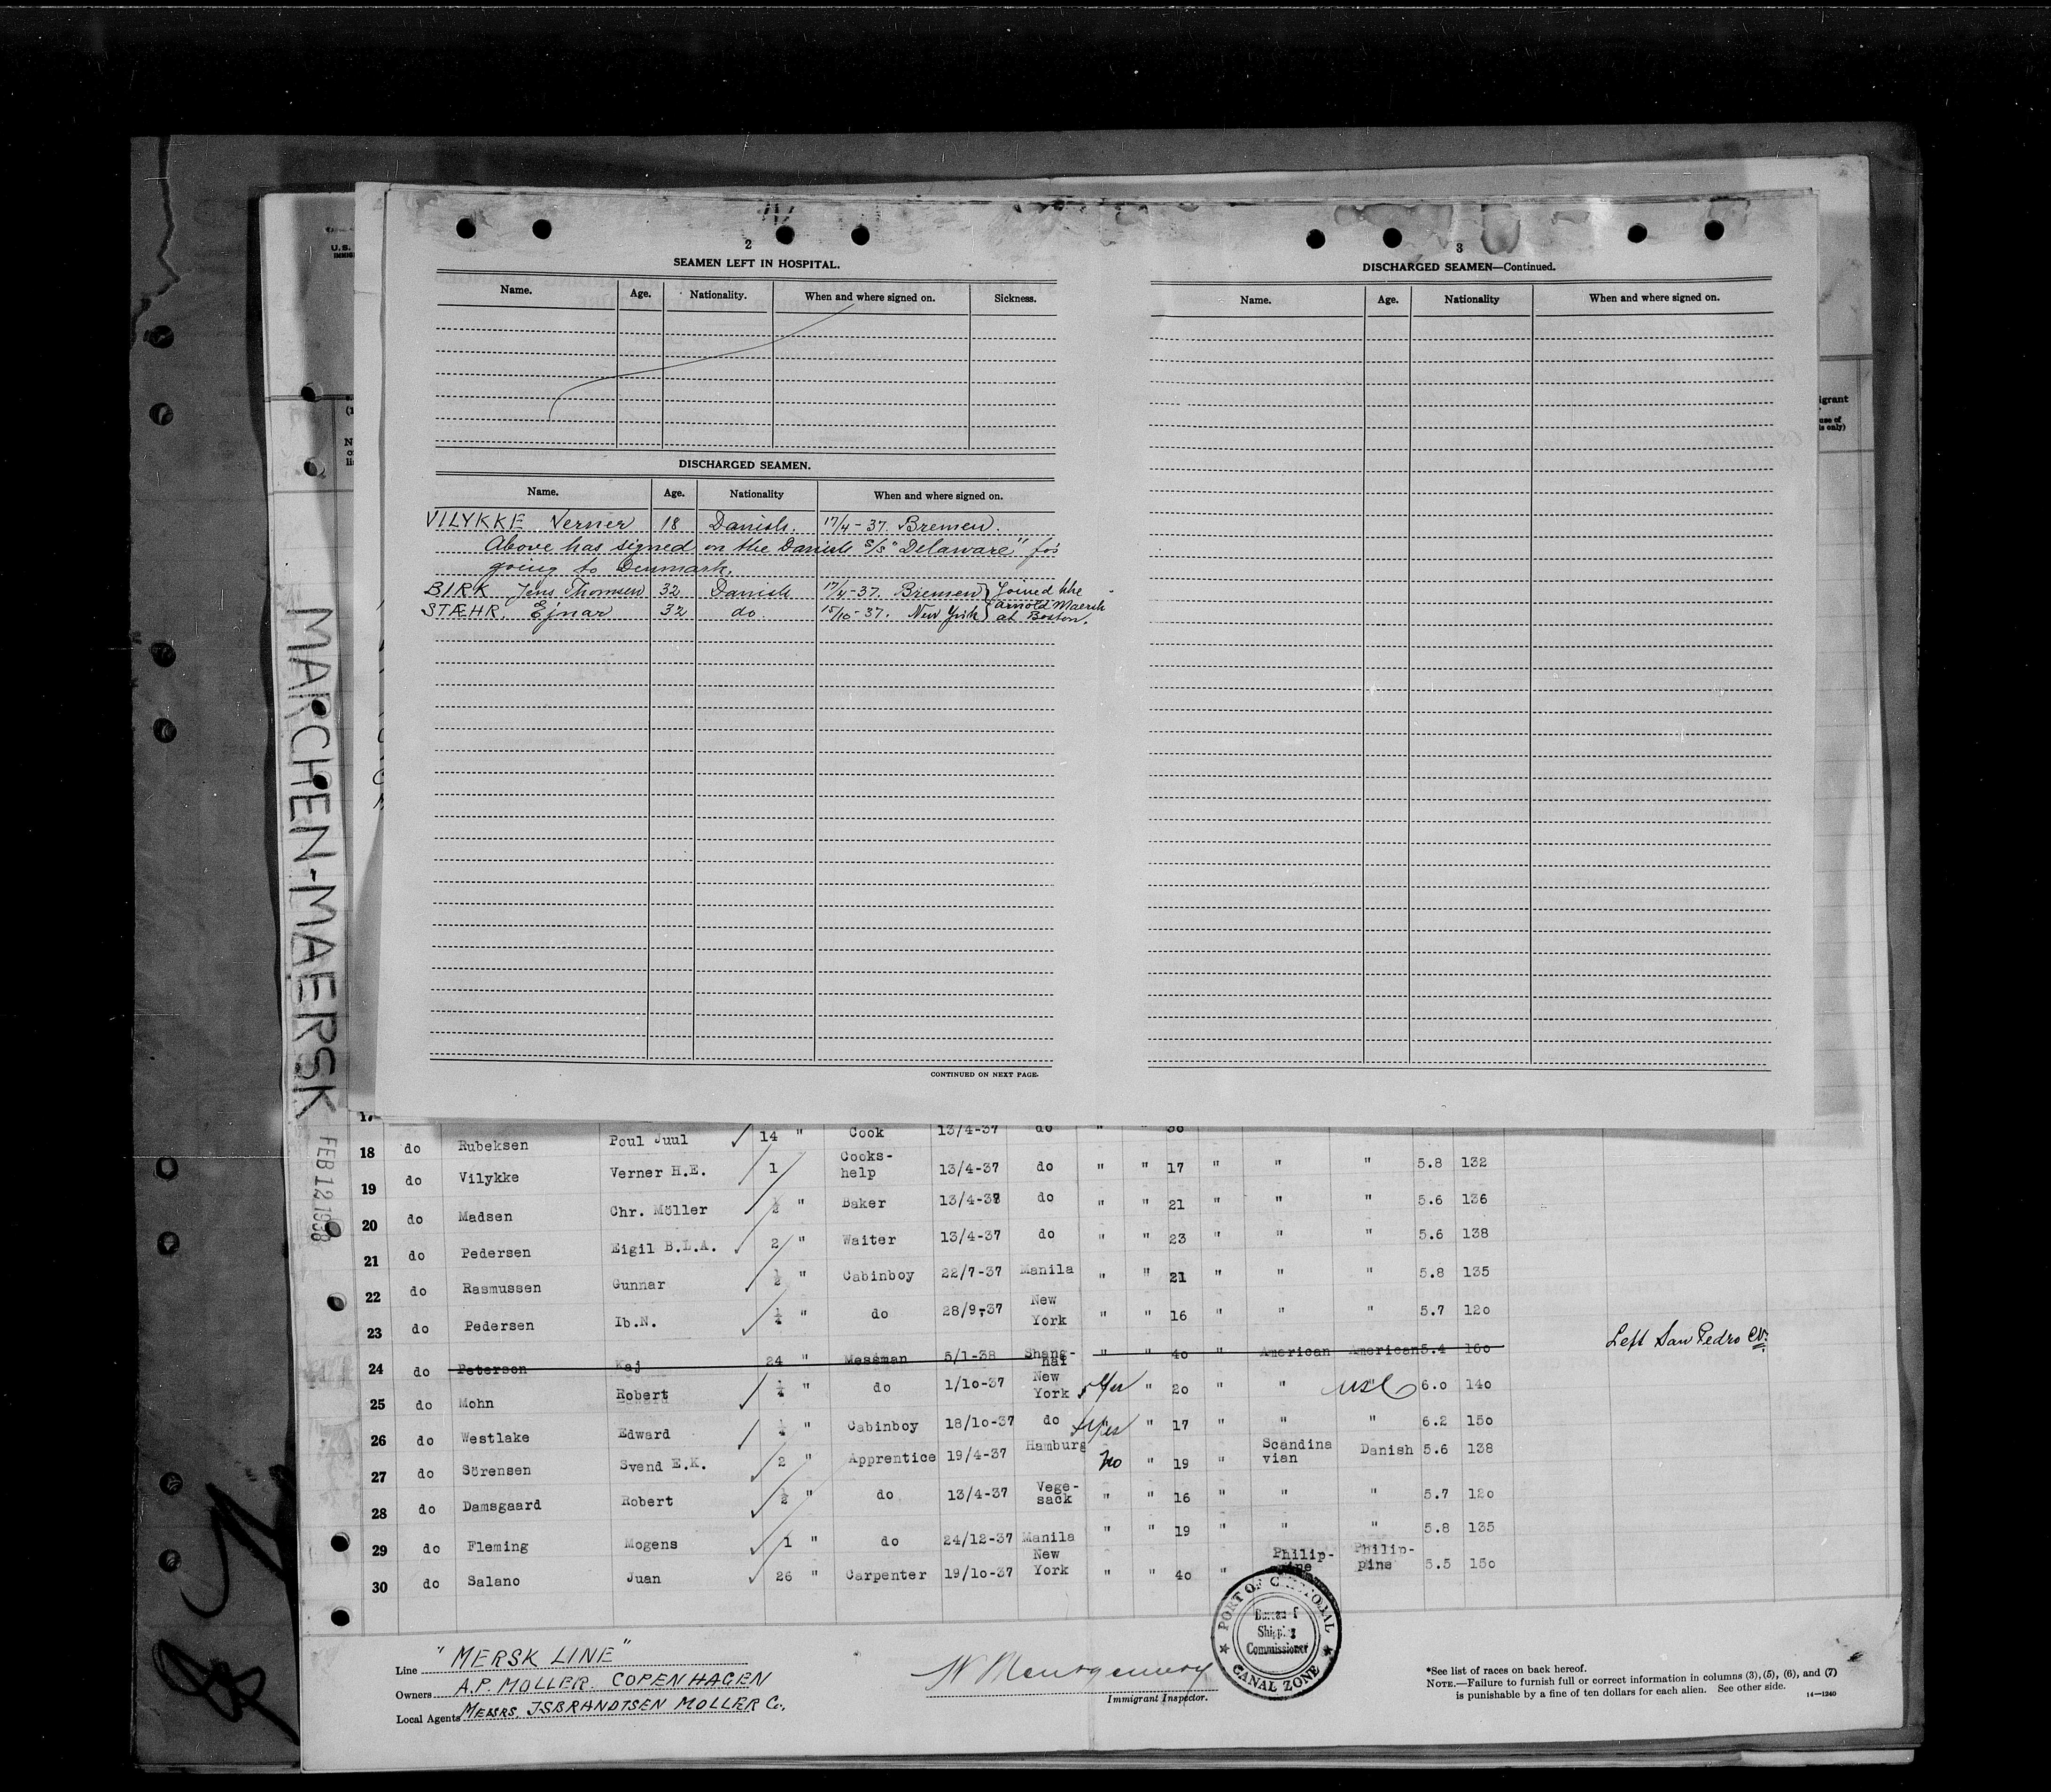 2
SEAMEN LEFT IN HOSPITAL.
Name. Age. Nationality. When and where signed on. Sickness.
DISCHARGED SEAMEN.
Name. Age. Nationality When and where signed on.
VILYKKE Verner 18 Danish. 17/4-37. Bremen.
Above has signed on the Danish S/S "Delaware" for
going to Denmark.
BIRK Jens Thomsen 32 Danish 17/4-37. Bremen } Joined the
STÆHR. Ejnar 32 do. 15/10-37. New York } Arnold Maersk
at Boston.
CONTINUED ON NEXT PAGE.
3
DISCHARGED SEAMEN—Continued.
Name. Age. Nationality When and where signed on.
U.S.
igrant
use of
is only)
MARCHEN-MAERSK FEB 12 1938
17
18 do Rubeksen Poul Juul 14 " Cook 13/4-37 do " " 38
19 do Vilykke Verner H.E. 1 Cooks-help 13/4-37 do " " 17 " " " 5.8 132
20 do Madsen Chr. Möller ½ " Baker 13/4-38 do " " 21 " " " 5.6 136
21 do Pedersen Eigil B.L.A. 2 " Waiter 13/4-37 do " " 23 " " " 5.6 138
22 do Rasmussen Gunnar ½ " Cabinboy 22/7-37 Manila " " 21 " " " 5.8 135
23 do Pedersen Ib.N. ¼ " do 28/9-37 New York " " 16 " " " 5.7 120
24 do Peterson Kaj 24 " Messman 5/1-38 Shang-hai " " 40 " American American 5.4 160 Left San Pedro
25 do Mohn Robert ¼ " do 1/10-37 New York yes " 20 " " USC 6.0 140
26 do Westlake Edward ¼ " Cabinboy 18/10-37 do yes " 17 " " " 6.2 150
27 do Sörensen Svend E.K. 2 " Apprentice 19/4-37 Hamburg no " 19 " Scandinavian Danish 5.6 138
28 do Damsgaard Robert ½ " do 13/4-37 Vege-sack " " 16 " " " 5.7 120
29 do Fleming Mogens 1 " do 24/12-37 Manila " " 19 " " " 5.8 135
30 do Salano Juan 26 " Carpenter 19/10-37 New York " " 40 " Philip-pine Philip-pine 5.5 150
Line "MERSK LINE"
Owners A.P. MOLLER. COPENHAGEN
Local Agents MESSRS. ISBRANDTSEN MOLLER Co.,
W Montgomery
Immigrant Inspector.
PORT OF CRISTOBAL
Bureau of
Shipping
Commissioner
CANAL ZONE
*See list of races on back hereof.
NOTE.—Failure to furnish full or correct information in columns (3), (5), (6), and (7)
is punishable by a fine of ten dollars for each alien. See other side. 14—1240